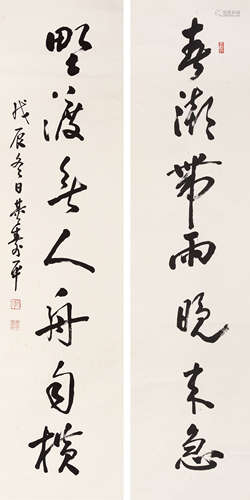 春潮帶雨晚来急
野渡無人舟自横
戊辰冬日董寿平